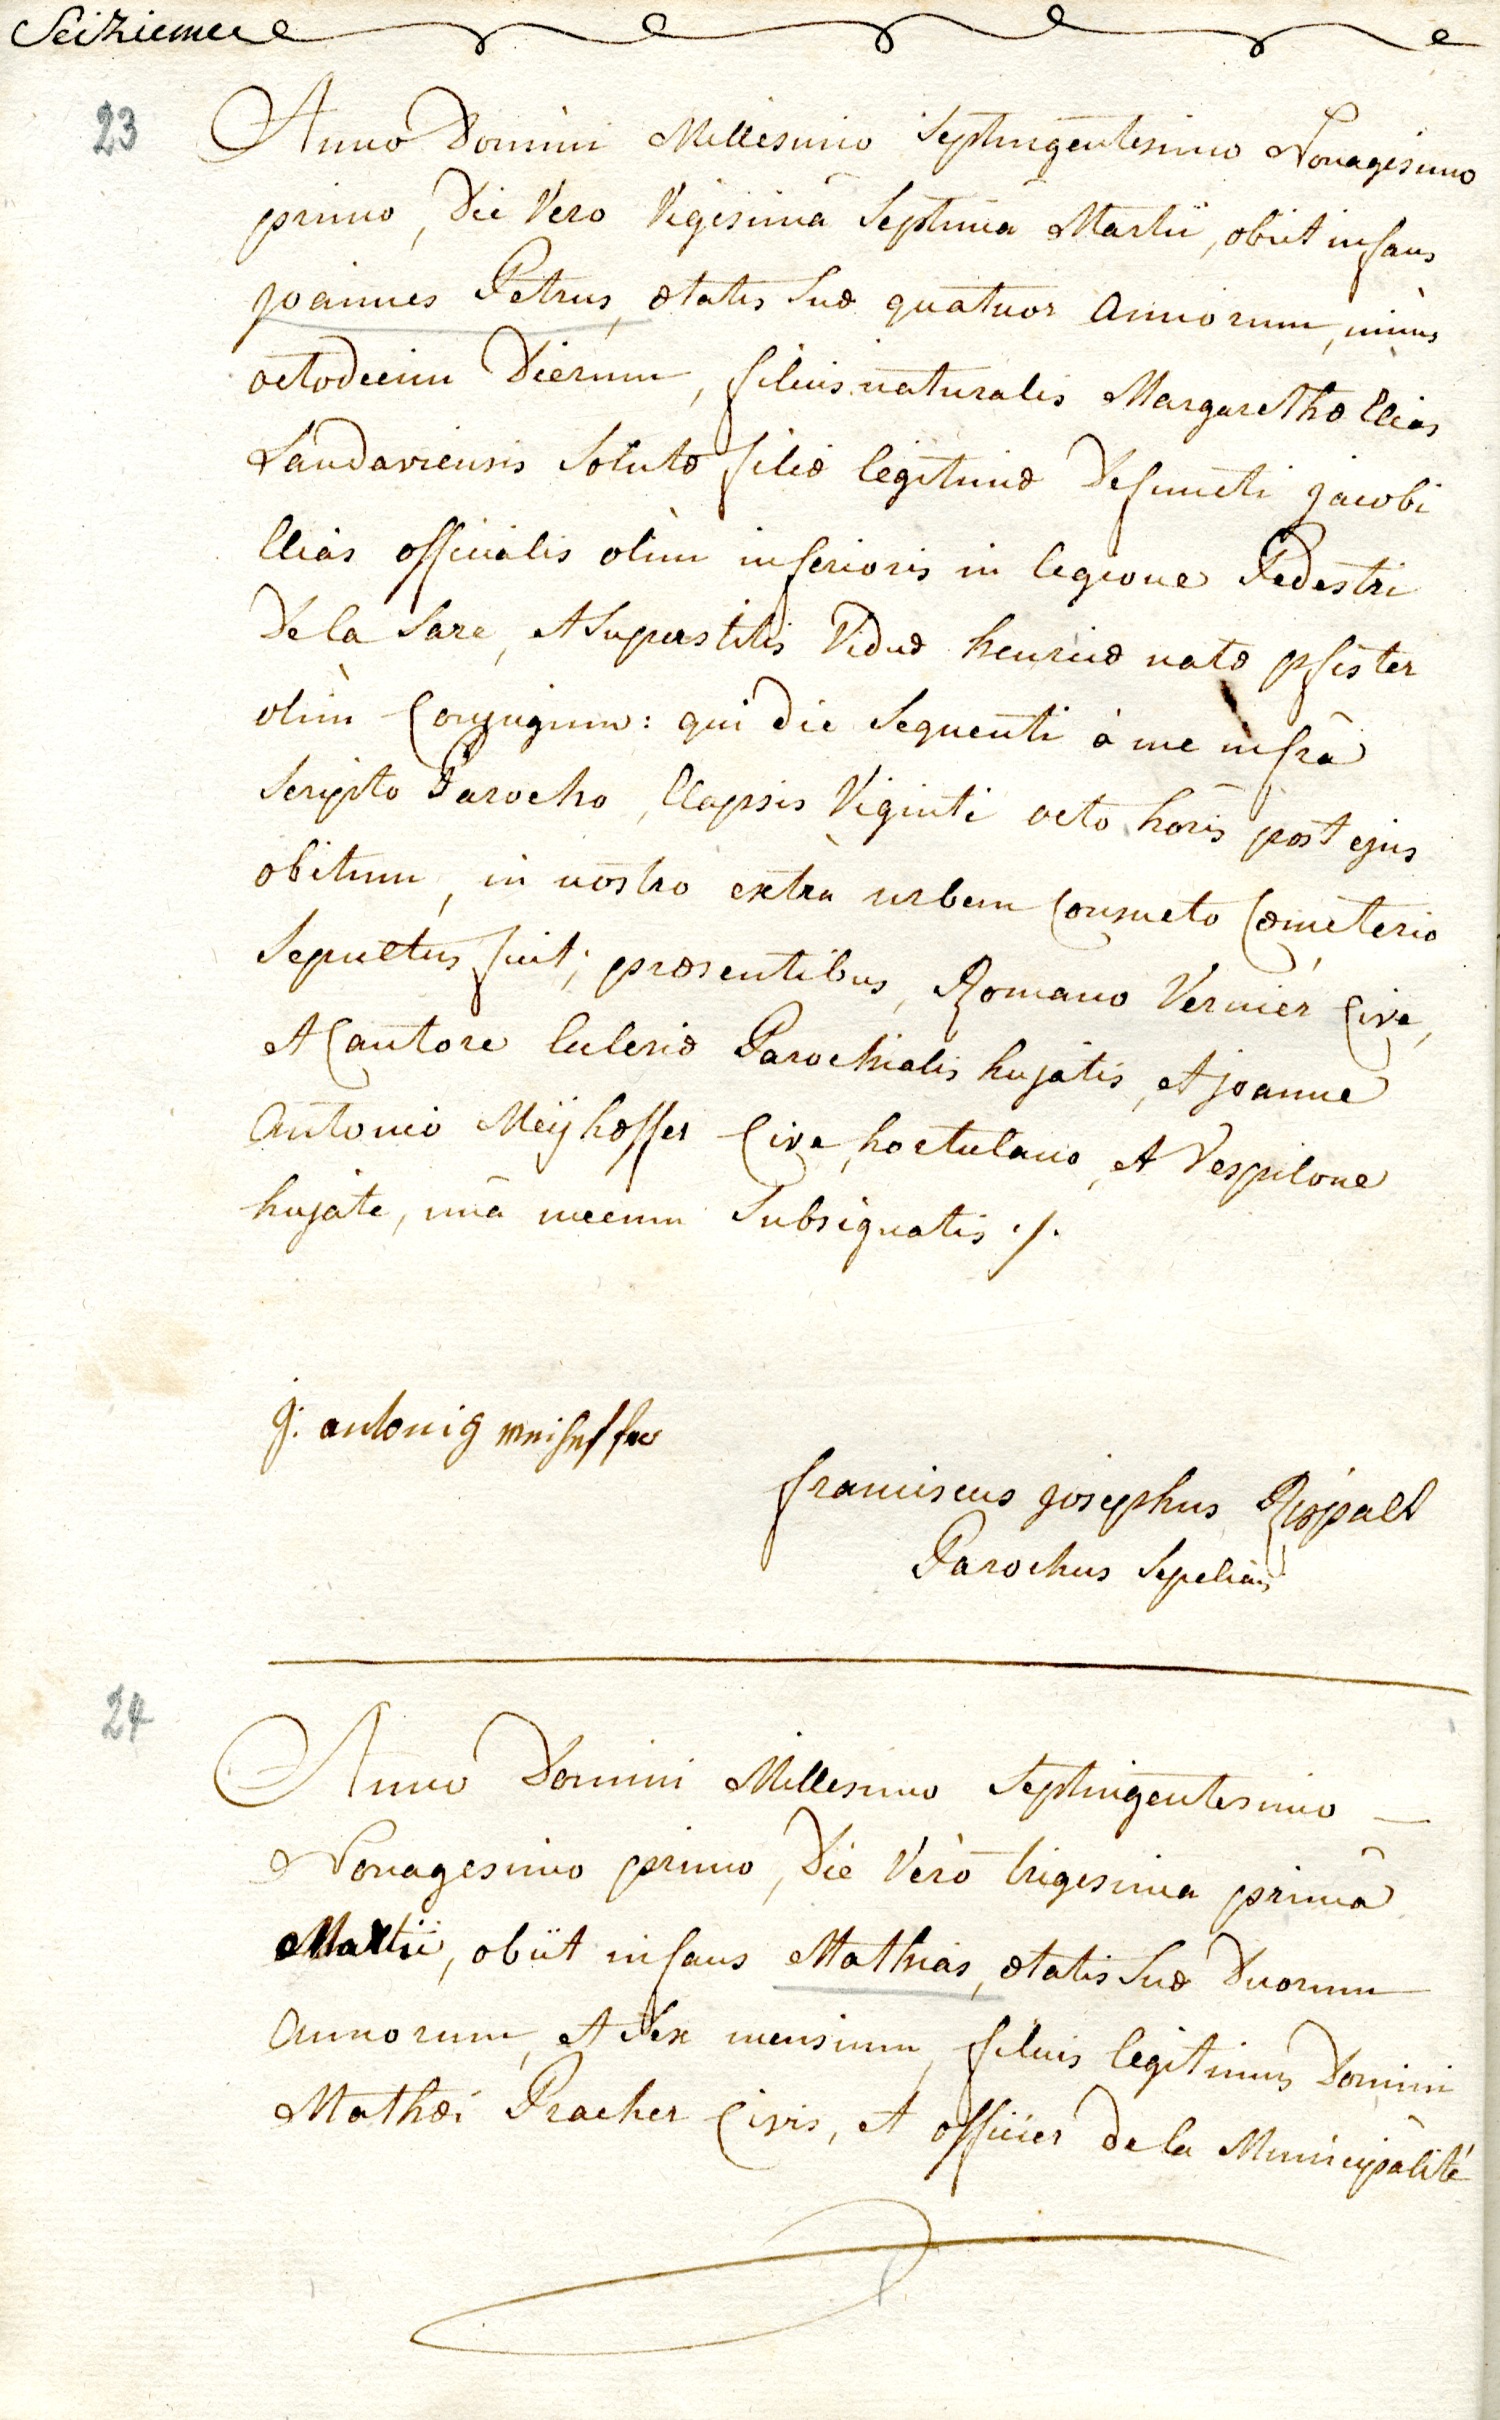 Seizieme
23
Anno Domini Millesimo Septingentesimo Nonagesimo
primo, Die Vero Vigesimâ Septimâ Martii, obiit infans
joannes Petrus, ætatis Suæ quatuor annorum, minùs
octodecim Dierum, filius naturalis Margarethæ Elias
Landaviensis Solutæ filiæ legitimæ Defuncti jacobi
Elias officialis olim inferioris in legione Pedestri
De la Sare, et Superstitis Viduæ henricæ natæ pfister
olim Conjugum: qui die Sequenti à me infrà
Scripto Parocho, Elapsis Viginti octo horis post ejus
obitum, in nostro extra urbem Consueto Cœmeterio
Sepultus fuit; præsentibus, Romano Vernier Cive,
et Cantore Ecclesiæ Parochialis hujatis, et joanne
antonio Meÿhoffer Cive, hortulano, et Vespilone
hujate, unâ mecum Subsignatis ./.
j. antonig
franciscus josephus
Parochus Sepelians
24
Anno Domini Millesimo Septingentesimo
Nonagesimo primo, Die Verò trigesima primâ
Martii, obiit infans Mathias, ætatis Suæ Duorum
Annorum, et Sex mensium, filius legitimus Domini
Mathæi Pracher Civis, et officier de la Municipalité